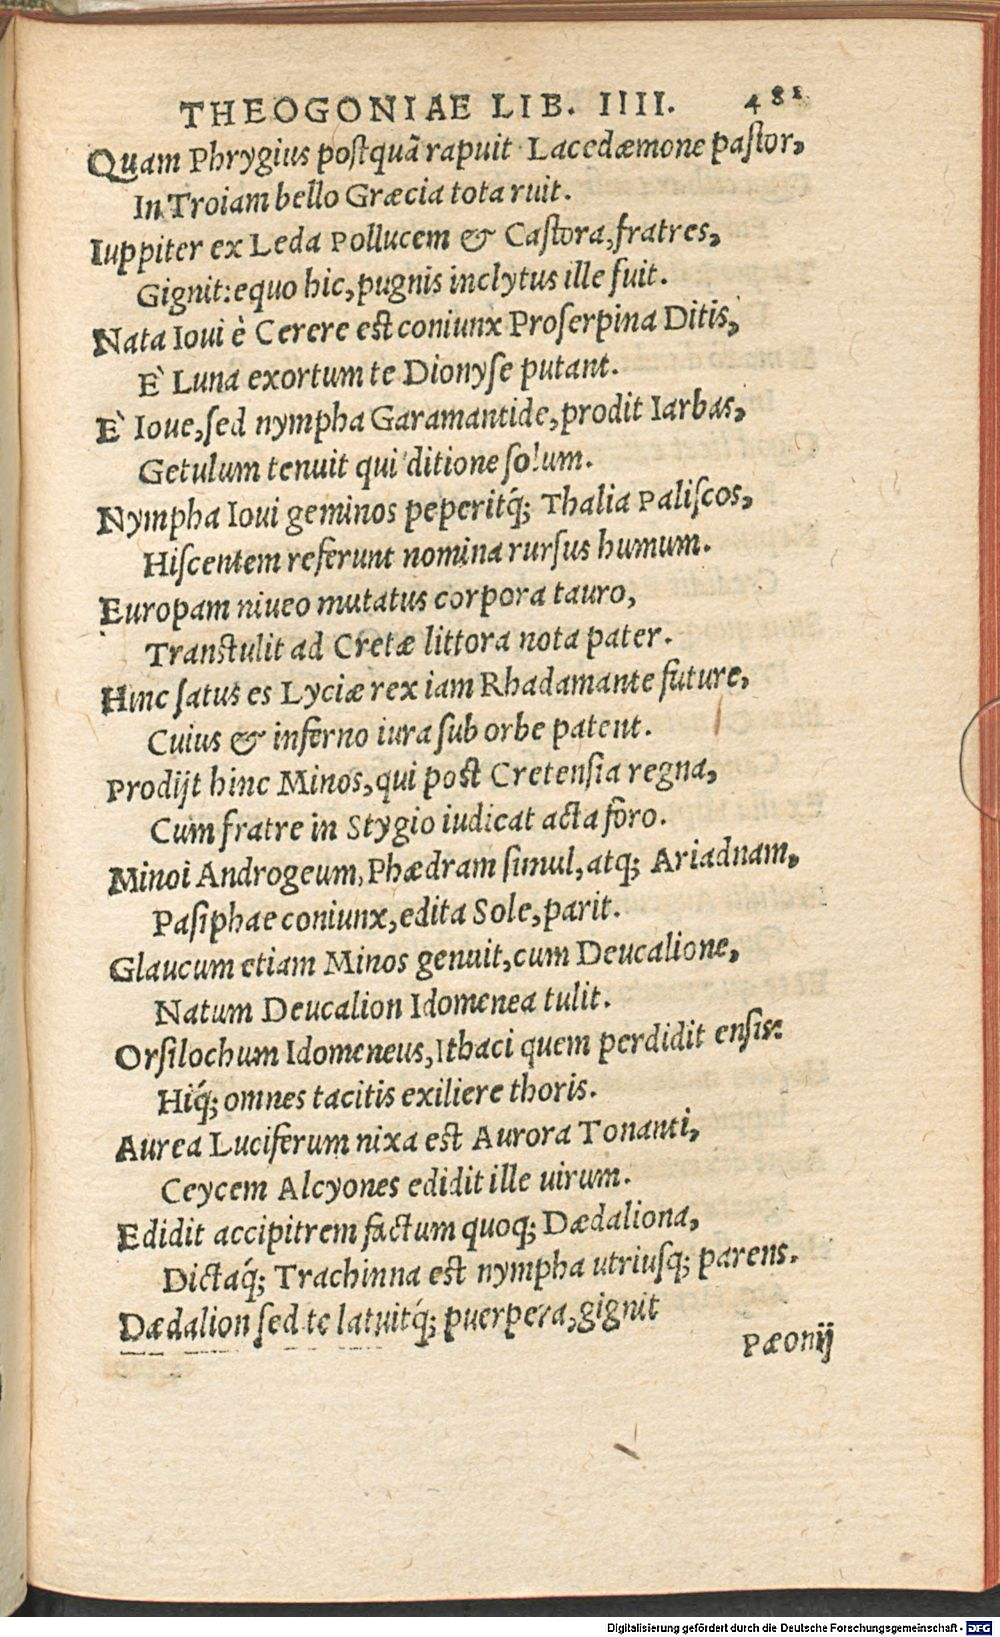 THEOGONIAE LIB. IIII. 481
Quam Phrygius postquã rapuit Lacedæmone pastor,
In Troiam bello Græcia tota ruit.
Iuppiter ex Leda Pollucem & Castora, fratres,
Gignit: equo hic, pugnis inclytus ille fuit.
Nata Ioui è Cerere est coniunx Proserpina Ditis,
E' Luna exortum te Dionyse putant.
E' Ioue, sed nympha Garamantide, prodit Iarbas,
Getulum tenuit qui ditione solum.
Nympha Ioui geminos peperitq́; Thalia Paliscos,
Hiscentem referunt nomina rursus humum.
Europam niueo mutatus corpora tauro,
Transtulit ad Cretæ littora nota pater.
Hinc satus es Lyciæ rex iam Rhadamante future,
Cuius & inferno iura sub orbe patent.
Prodijt hinc Minos, qui post Cretensia regna,
Cum fratre in Stygio iudicat acta foro.
Minoi Androgeum, Phædram simul, atq; Ariadnam,
Pasiphae coniunx, edita Sole, parit.
Glaucum etiam Minos genuit, cum Deucalione,
Natum Deucalion Idomenea tulit.
Orsilochum Idomeneus, Ithaci quem perdidit ensis:
Hiq́; omnes tacitis exiliere thoris.
Aurea Luciferum nixa est Aurora Tonanti,
Ceycem Alcyones edidit ille uirum.
Edidit accipitrem factum quoq; Dædaliona,
Dictaq́; Trachinna est nympha utriusq; parens.
Dædalion sed te latuitq́; puerpera, gignit
Pæonij
Digitalisierung gefördert durch die Deutsche Forschungsgemeinschaft - DFG